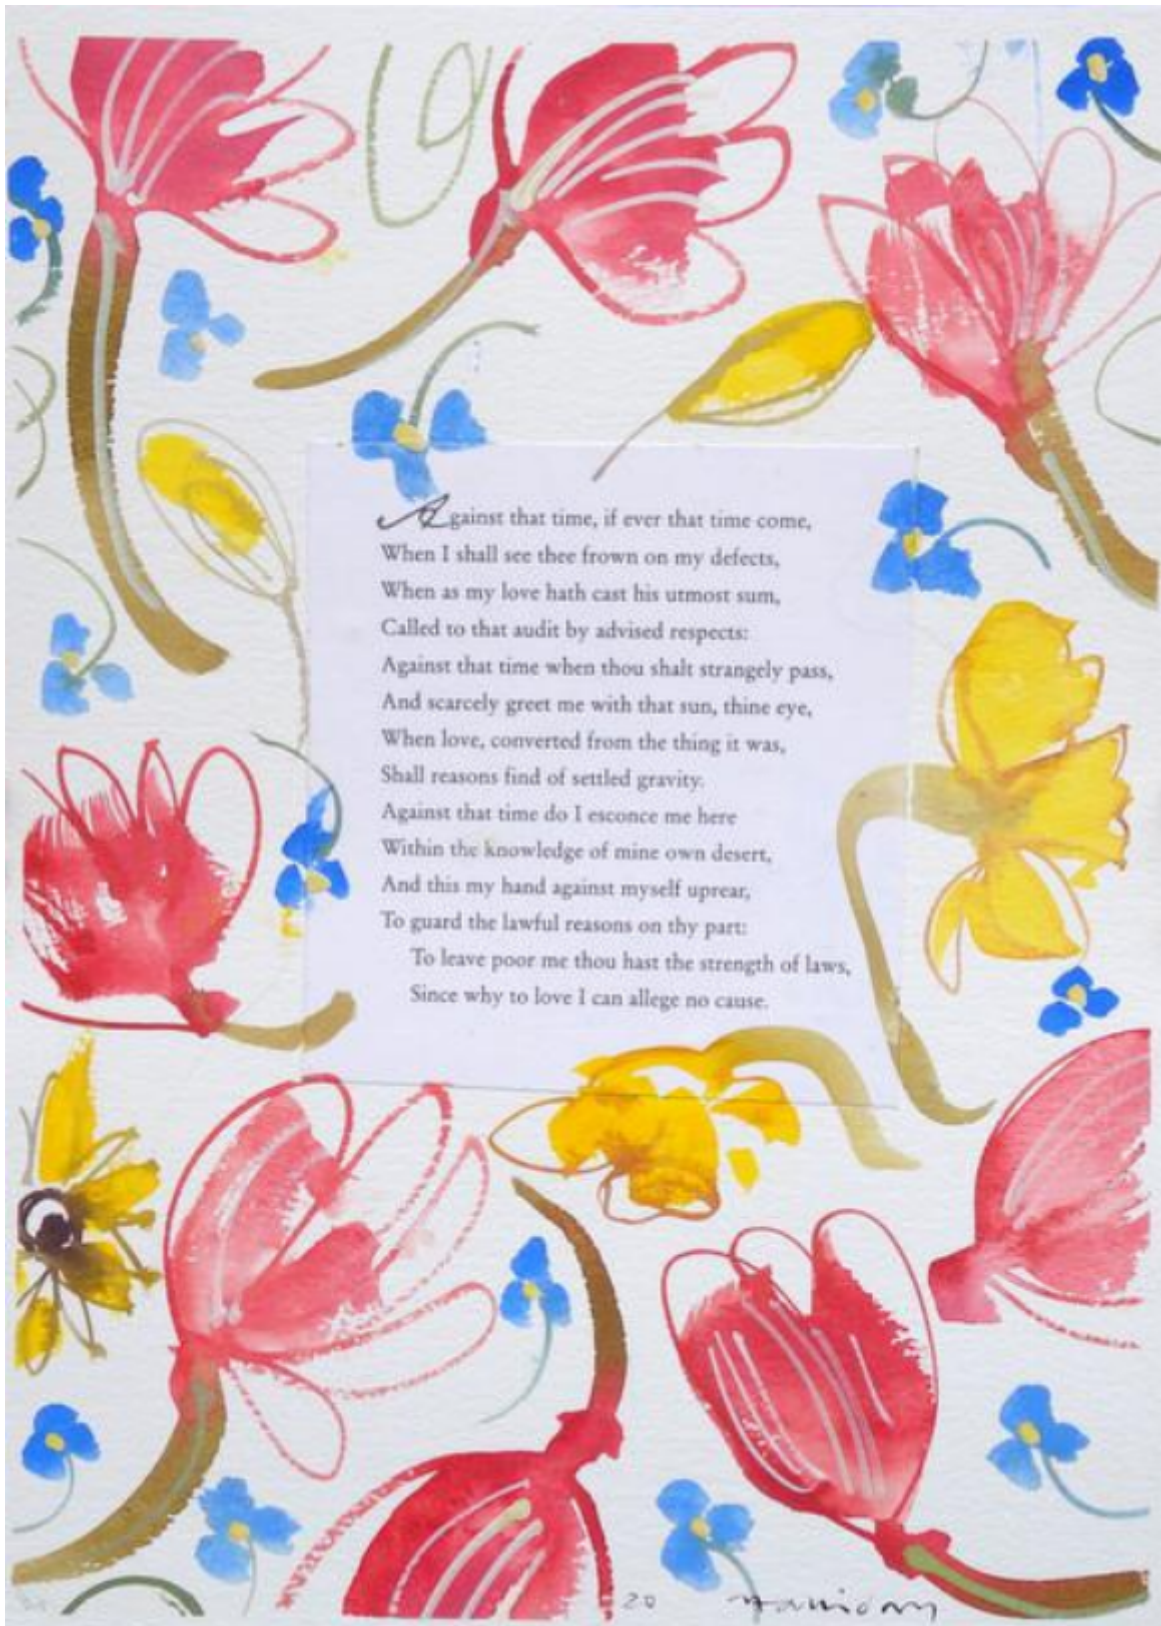 Against that time, if ever that time come,
When I shall see thee frown on my defects,
When as my love hath cast his utmost sum,
Called to that audit by advised respects:
Against that time when thou shalt strangely pass,
And scarcely greet me with that sun, thine eye,
When love, converted from the thing it was,
Shall reasons find of settled gravity.
Against that time do I esconce me here
Within the knowledge of mine own desert,
And this my hand against myself uprear,
To guard the lawful reasons on thy part:
To leave poor me thou hast the strength of laws,
Since why to love I can allege no cause.
20